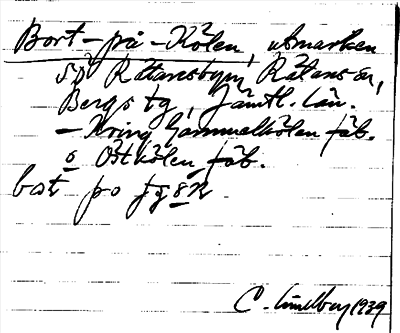 Bort-på-Kölen, utmarken
på Rätansbyn, Rätans sn,
Bergs tg, Jämtl. län.
- Kring Gammelkölen fäb.
o Östkölen fäb.
bot po
C. Lindberg 1939